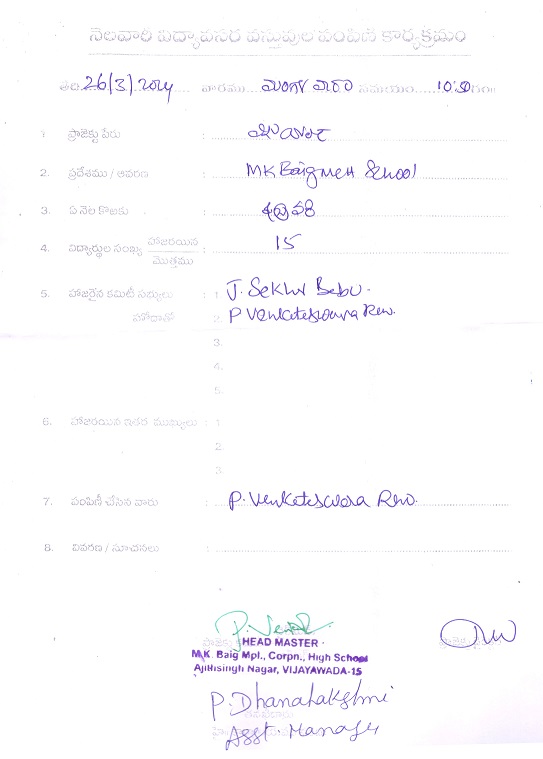 నెలవారీ విద్యావసర వస్తువుల పంపిణీ కార్యక్రమం
తేది. 26/3/2024 వారము మంగళ వారం సమయం 10:30గం॥
1. ప్రాజెక్టు పేరు :
2. ప్రదేశము / ఆవరణ : MK Baig MCH School
3. ఏ నెల కొరకు : ఫిబ్రవరి
4. విద్యార్థుల సంఖ్య హాజరయిన / మొత్తము : 15
5. హాజరైన కమిటీ సభ్యులు : 1. J. Sekhar Babu.
హోదాతో 2. P Venkateswara Rao.
3.
4.
5.
6. హాజరయిన ఇతర ముఖ్యులు : 1
2.
3.
7. పంపిణీ చేసిన వారు : P. Venkateswara Rao.
8. వివరణ / సూచనలు :
HEAD MASTER
M.K. Baig Mpl., Corpn., High School
Ajithsingh Nagar, VIJAYAWADA-15
P. Dhanalakshmi
Asst. Manager